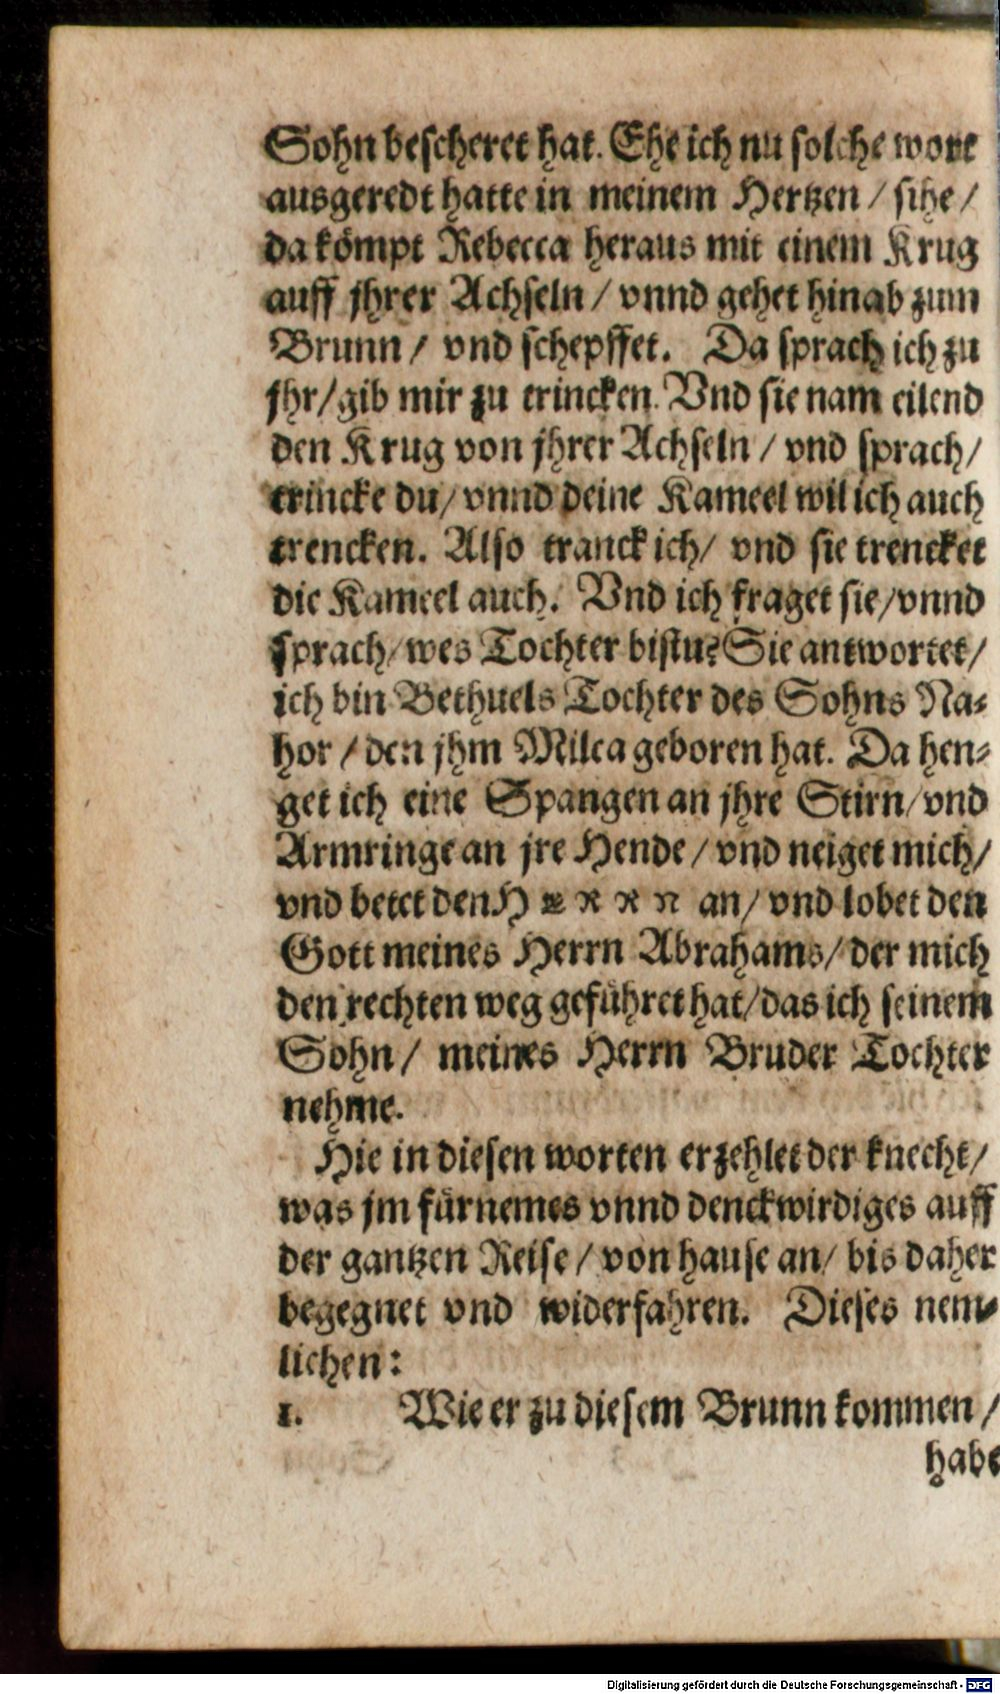 Sohn bescheret hat. Ehe ich nu solche wort
ausgeredt hatte in meinem Hertzen / sihe /
da kömpt Rebecca heraus mit einem Krug
auff jhrer Achseln / vnnd gehet hinab zum
Brunn / vnd schepffet. Da sprach ich zu
jhr / gib mir zu trincken. Vnd sie nam eilend
den Krug von jhrer Achseln / vnd sprach /
trincke du / vnnd deine Kameel wil ich auch
trencken. Also tranck ich / vnd sie trencket
die Kameel auch. Vnd ich fraget sie / vnnd
sprach / wes Tochter bistu? Sie antwortet /
ich bin Bethuels Tochter des Sohns Na-
hor / den jhm Milca geboren hat. Da hen-
get ich eine Spangen an jhre Stirn / vnd
Armringe an jre Hende / vnd neiget mich /
vnd betet den HERRN an / vnd lobet den
Gott meines Herrn Abrahams / der mich
den rechten weg geführet hat / das ich seinem
Sohn / meines Herrn Bruder Tochter
nehme.
Hie in diesen worten erzehlet der knecht /
was jm fürnemes vnnd denckwirdiges auff
der gantzen Reise / von hause an / bis daher
begegnet vnd widerfahren. Dieses nem-
lichen:
1. Wie er zu diesem Brunn kommen /
habe
Digitalisierung gefördert durch die Deutsche Forschungsgemeinschaft - DFG